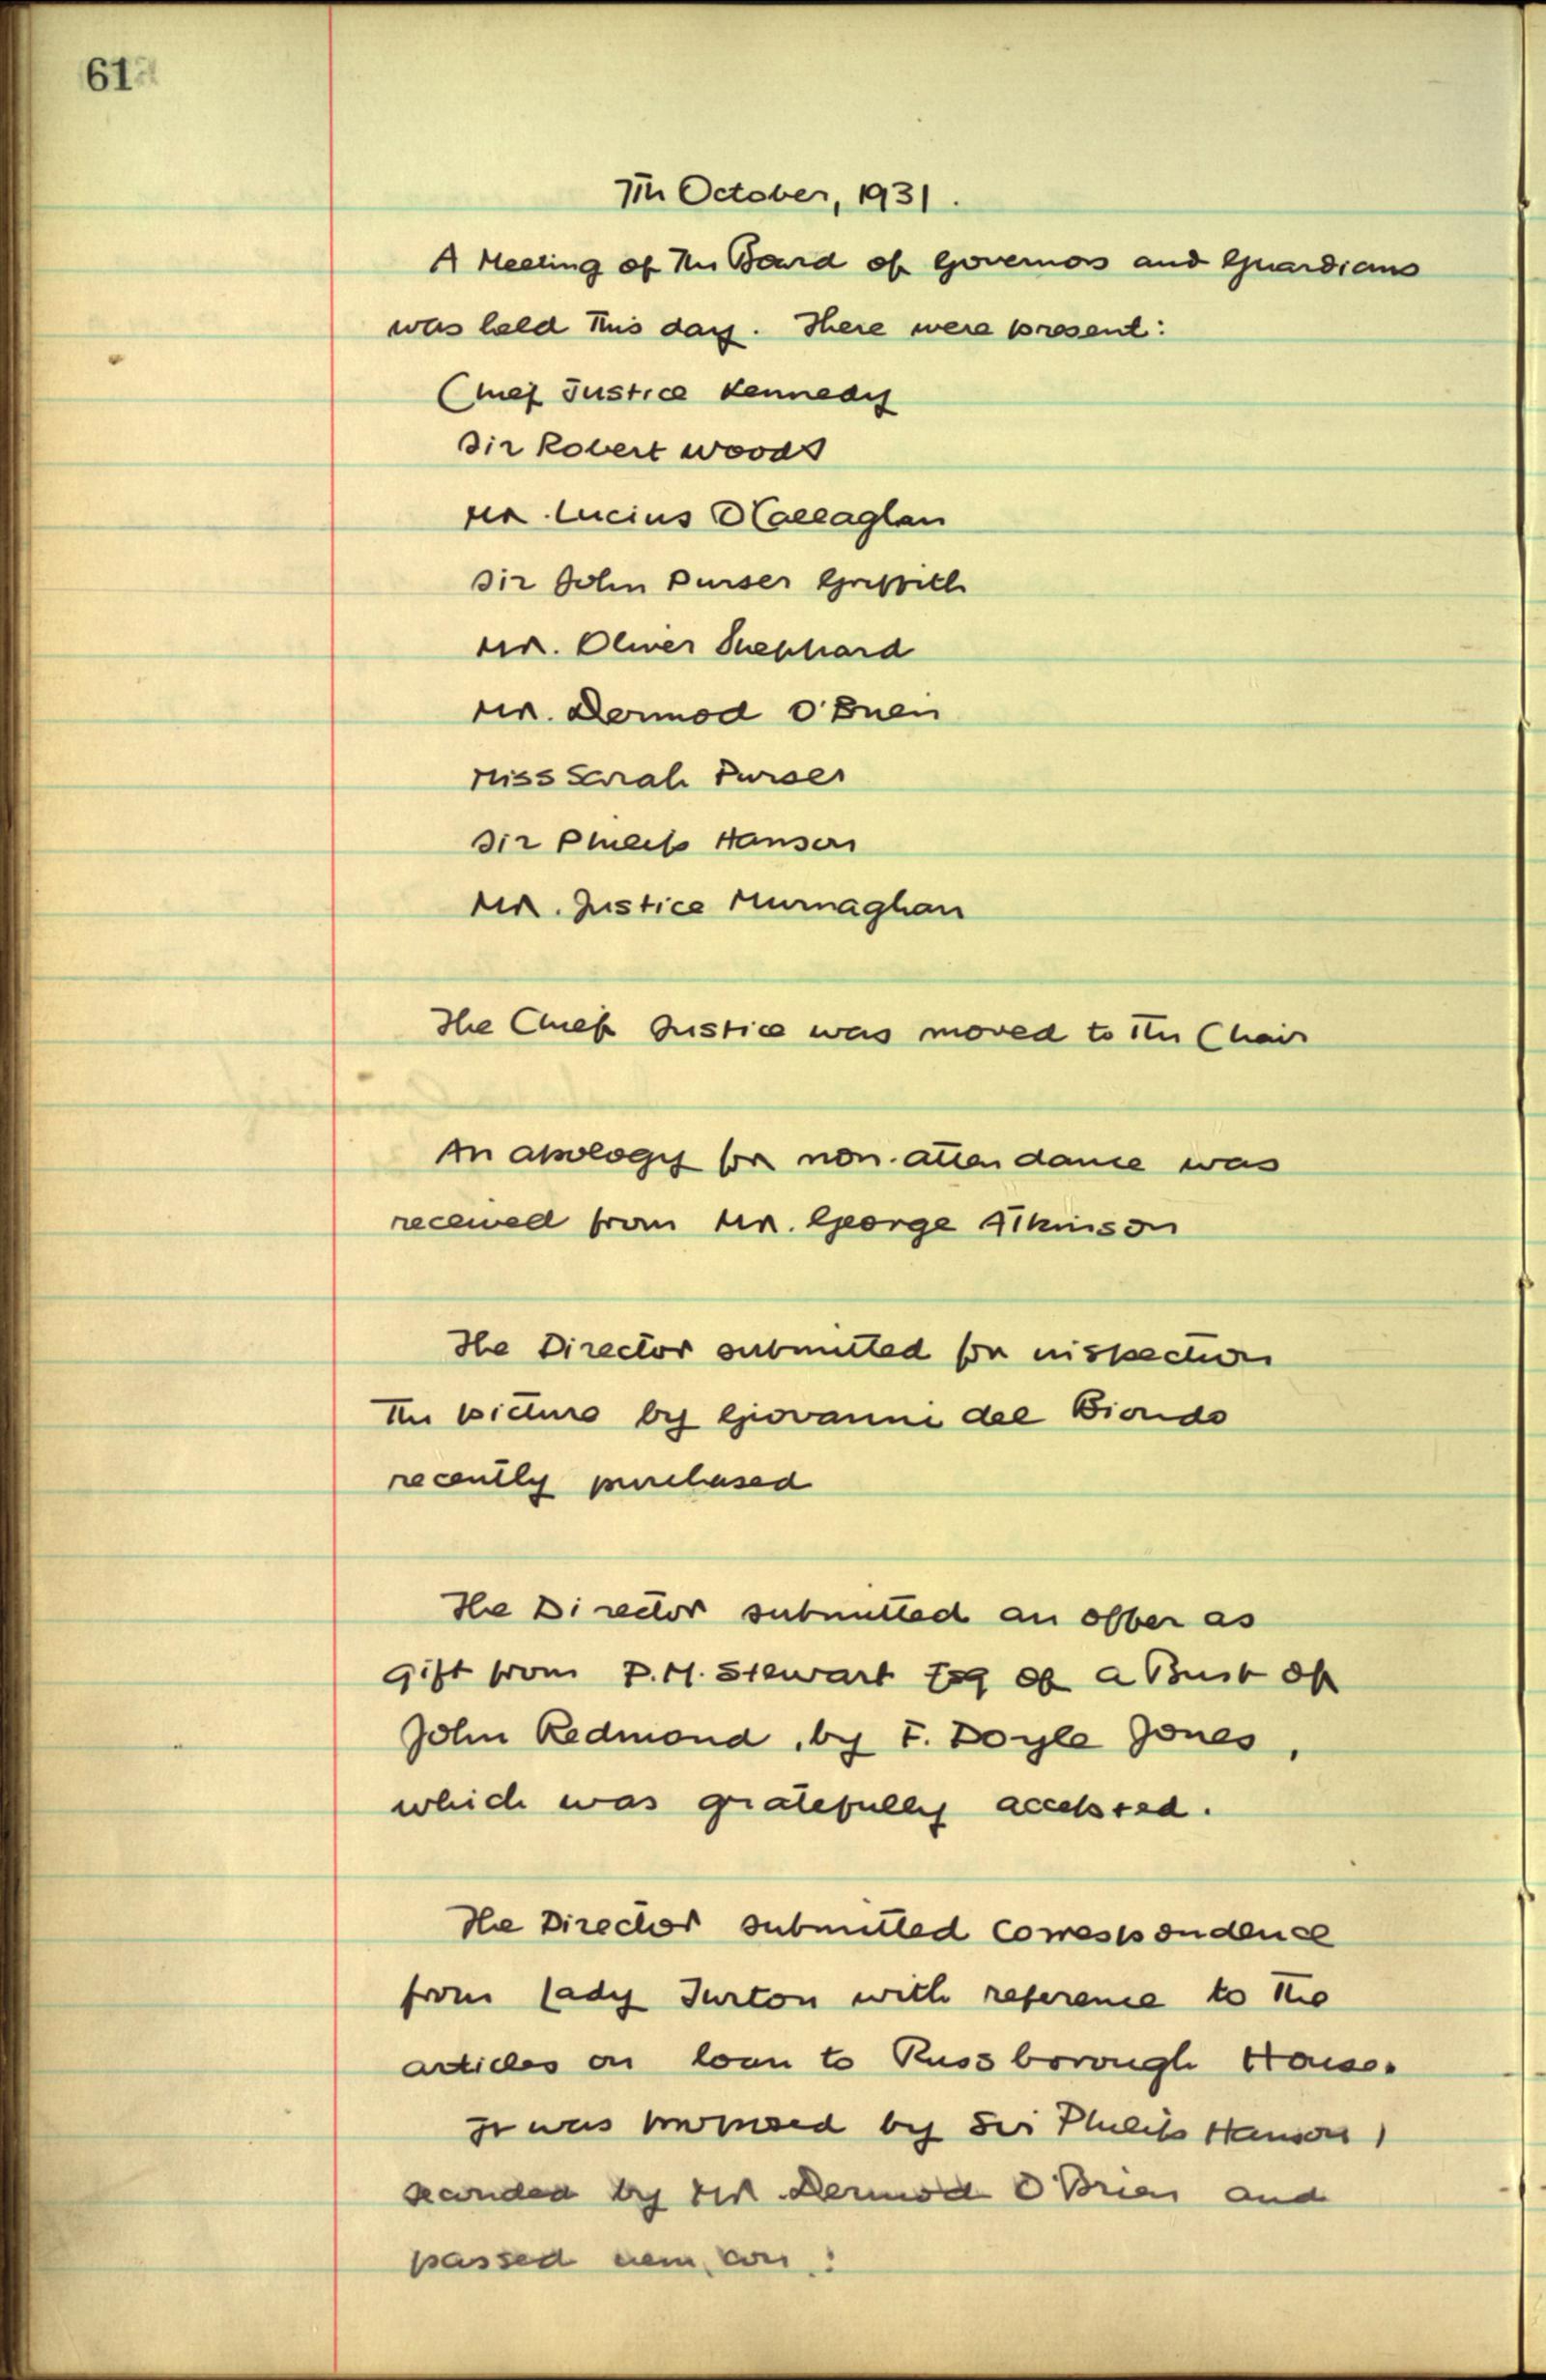 61
7th October, 1931.
A Meeting of the Board of Governors and Guardians
was held this day. There were present:
Chief Justice Kennedy
Sir Robert Woods
Mr. Lucius O'Callaghan
Sir John Purser Griffith
Mr. Oliver Sheppard
Mr. Dermod O'Brien
Miss Sarah Purser
Sir Philip Hanson
Mr. Justice Murnaghan
The Chief Justice was moved to the Chair
An apology for non-attendance was
received from Mr. George Atkinson
The Director submitted for inspection
the picture by Giovanni del Biondo
recently purchased
The Director submitted an offer as
gift from P.M. Stewart Esq of a Bust of
John Redmond, by F. Doyle Jones,
which was gratefully accepted.
The Director submitted correspondence
from Lady Turton with reference to the
articles on loan to Russborough House.
It was proposed by Sir Philip Hanson,
seconded by Mr Dermod O'Brien and
passed nem. con: